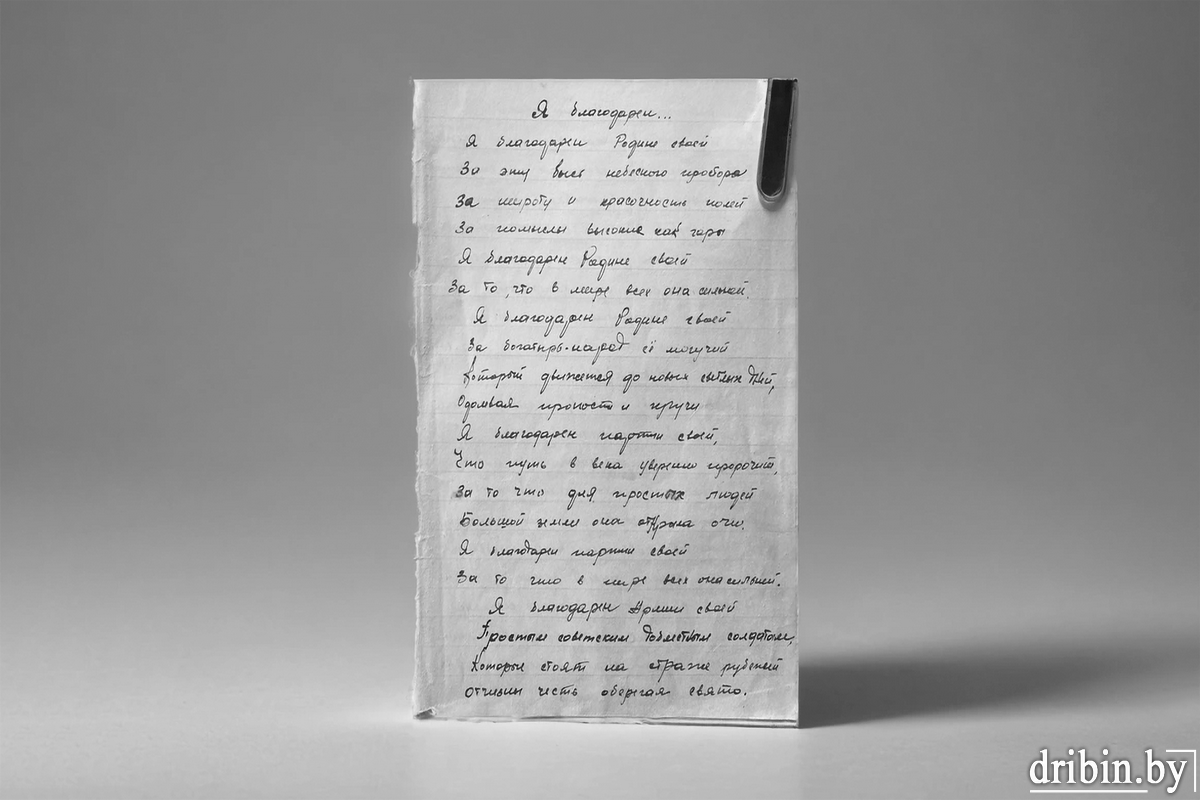 Я благодарен...
Я благодарен Родине своей
За эту высь небесного простора
За широту и красочность полей
За помыслы высокие как горы
Я благодарен Родине своей
За то, что в мире всех она сильней.
Я благодарен Родине своей
За богатырь-народ её могучий
Который движется до новых светлых дней,
Одолевая пропасти и кручи
Я благодарен партии своей,
Что путь в века уверенно пророчит,
За то что для простых людей
Большой земли она открыла очи.
Я благодарен партии своей
За то что в мире всех она сильней.
Я благодарен Армии своей
Простым советским доблестным солдатам,
Которые стоят на страже рубежей
Отчизны честь оберегая свято.
dribin.by